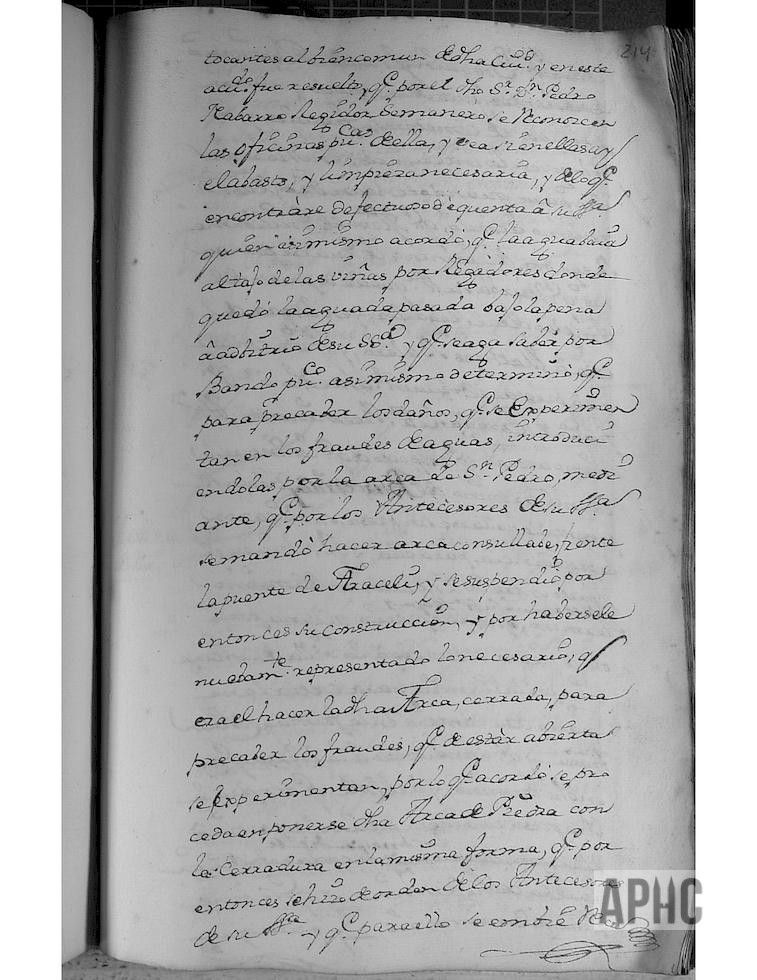 214
tocantes al bien comun de dha Ciud. y en este
acdo. fue resuelto, qe. por el dho Sr. Dn. Pedro
Nabarro Regidor Semanero se Reconozcan
las oficinas pucas. de ella, y vea si en ellas ay
el abasto, y limpieza necesaria, y de lo qe.
encontràre defectuoso dè quenta â su ssa
quien asimismo acordò, qe. la agua baia
al tajo de las viñas por Regidores donde
quedó la agua da pasada bajo la pena
â adbitrio de su Ssa. y qe. se aga saber por
Bando puco. asimismo determinò, qe.
para precaber los daños, qe. se Experimen
tan en los fraudes de aguas, introduci
endolas por la arca de Sn. Pedro, medi
ante, qe. por los Antecesores de su ssa.
se mandò hacer arca con su llabe, frente
la puente de Araceli, y se suspendiò por
entonces su construccion, y por habersele
nuebamte. representado lo necesario, q
era el hacer la dha Arca, cerrada, para
precaber los fraudes, qe. de estàr abierta
se Experimentan, por lo qe. acordó se pro
ceda en ponerse dha Arca de Piedra con
la Cerradura en la misma forma, qe. por
entonces se hizo de orden de los Antecesores
de su ssa. y qe. para ello se
APHC